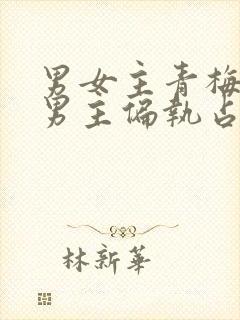 男女主青梅
男主偏執占
林新華